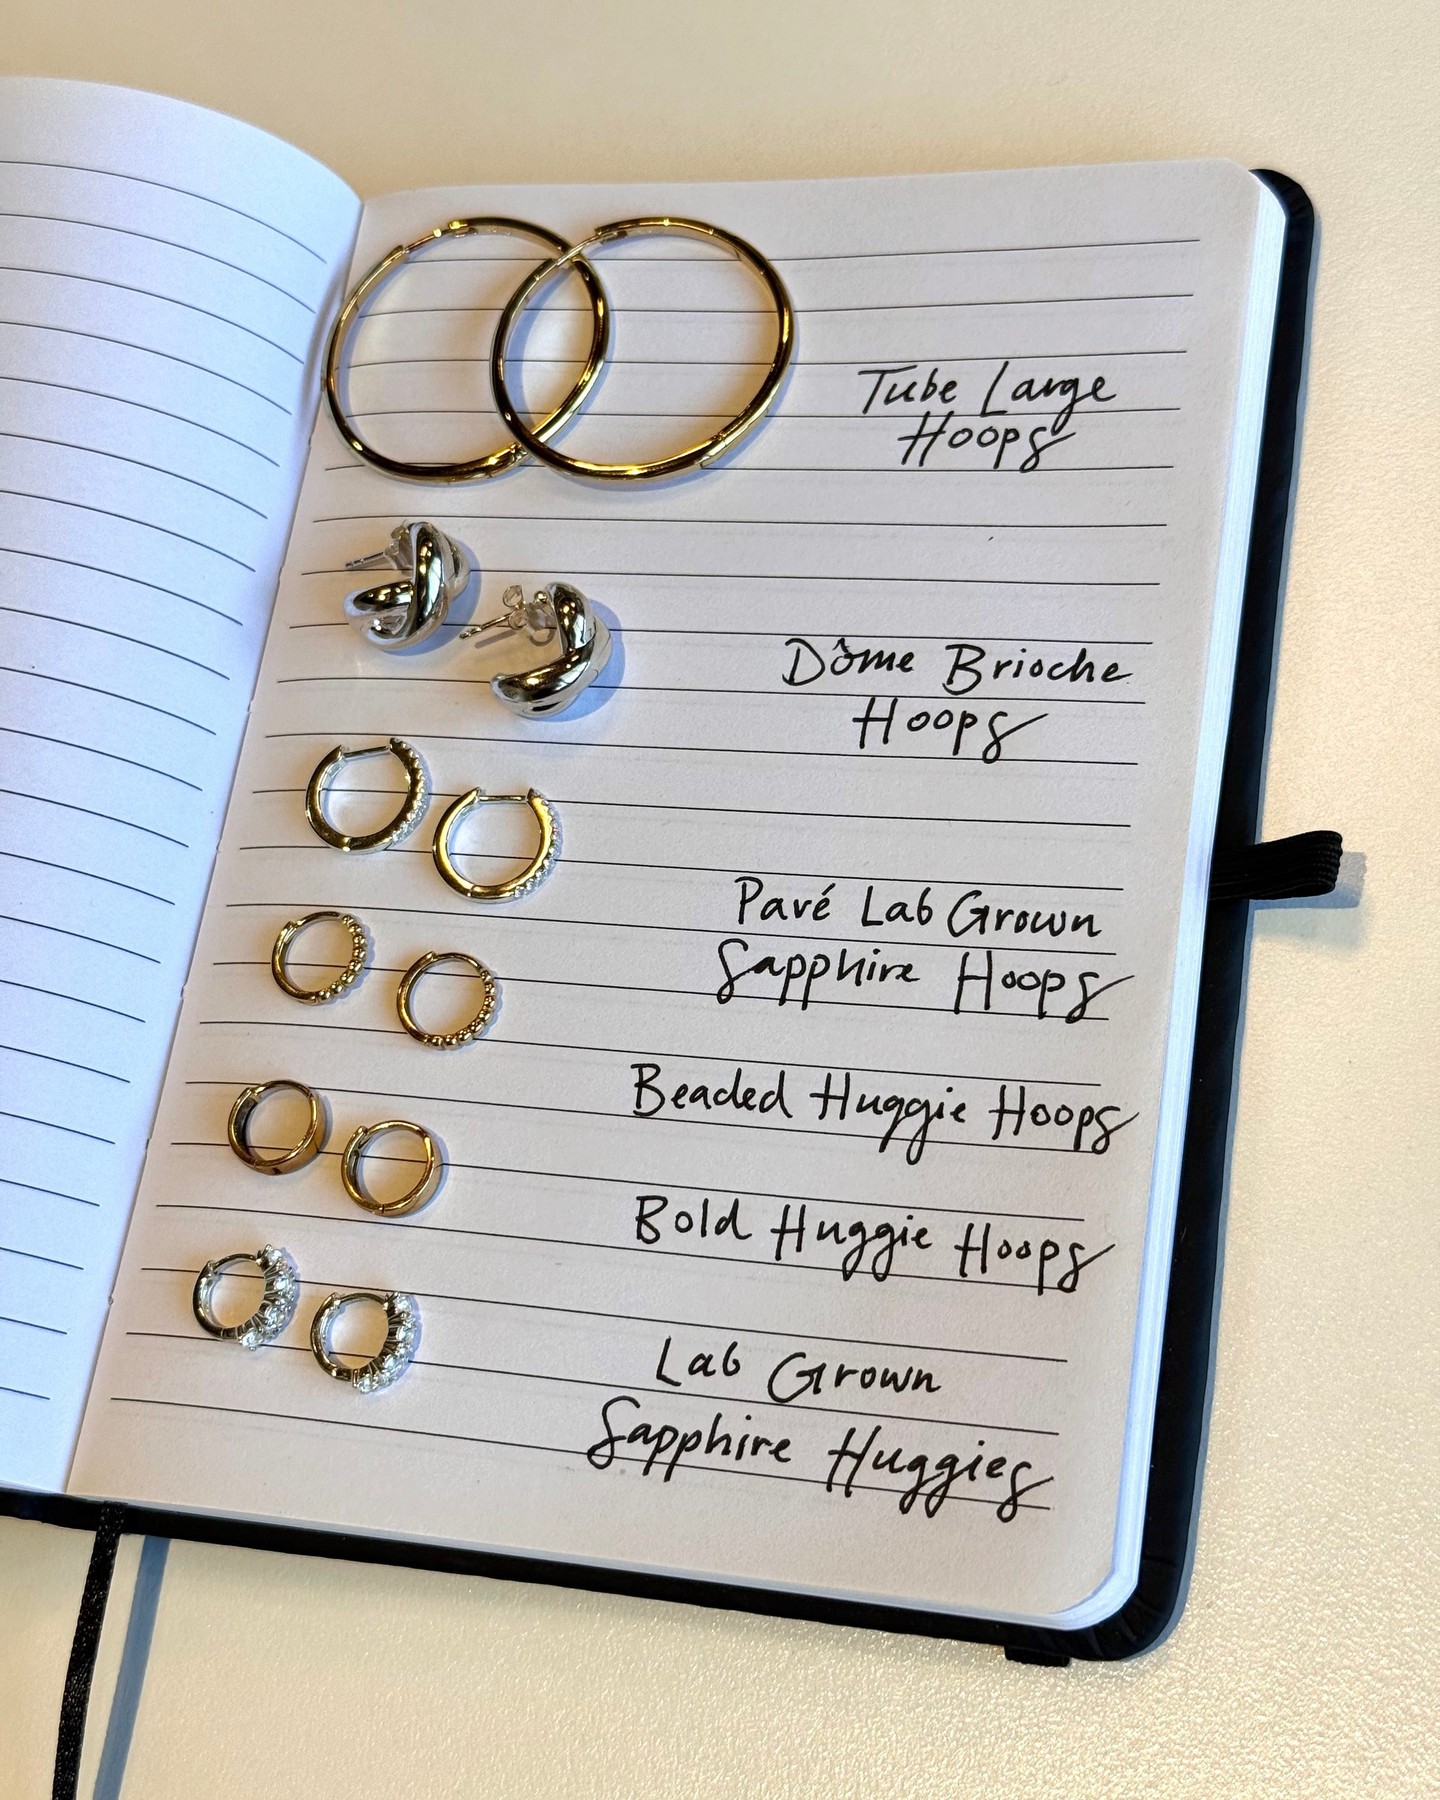 Tube Large
Hoops
Dôme Brioche
Hoops
Pavé Lab Grown
Sapphire Hoops
Beaded Huggie Hoops
Bold Huggie Hoops
Lab Grown
Sapphire Huggies